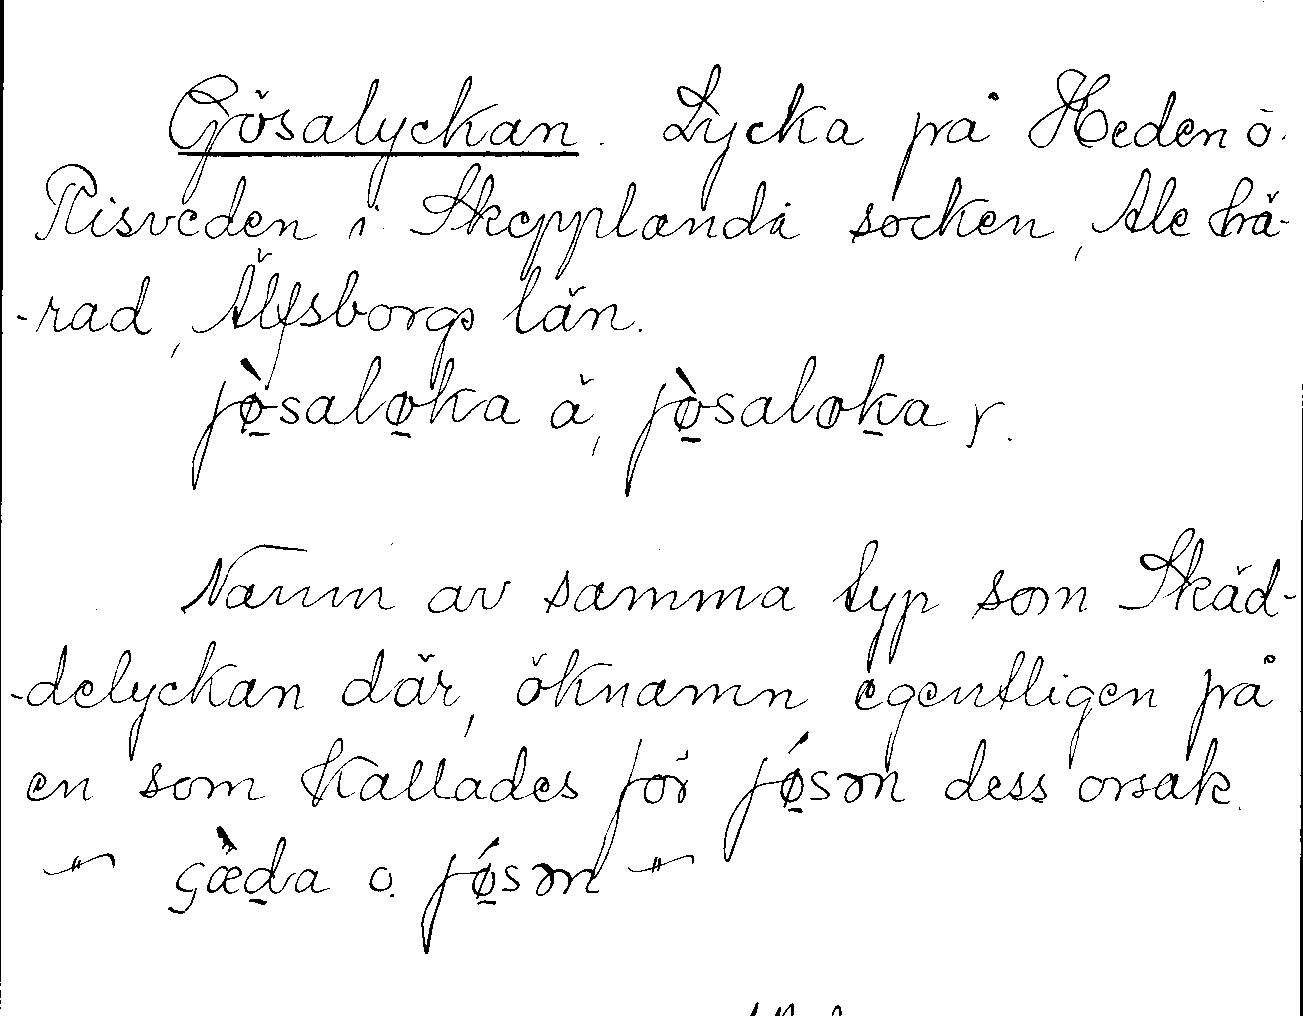 Gösalyckan. Lycka på Heden ö.
Risveden i Skepplanda socken, Ale hä-
-rad, Älfsborgs län.
jø̀salø̱ka ä, jø̀saloḵa y.
Namn av samma typ som Skäd-
-delyckan där, öknamn egentligen på
en som kallades för jǿsən dess orsak.
-"- gæ̀da o. jǿsən -"-